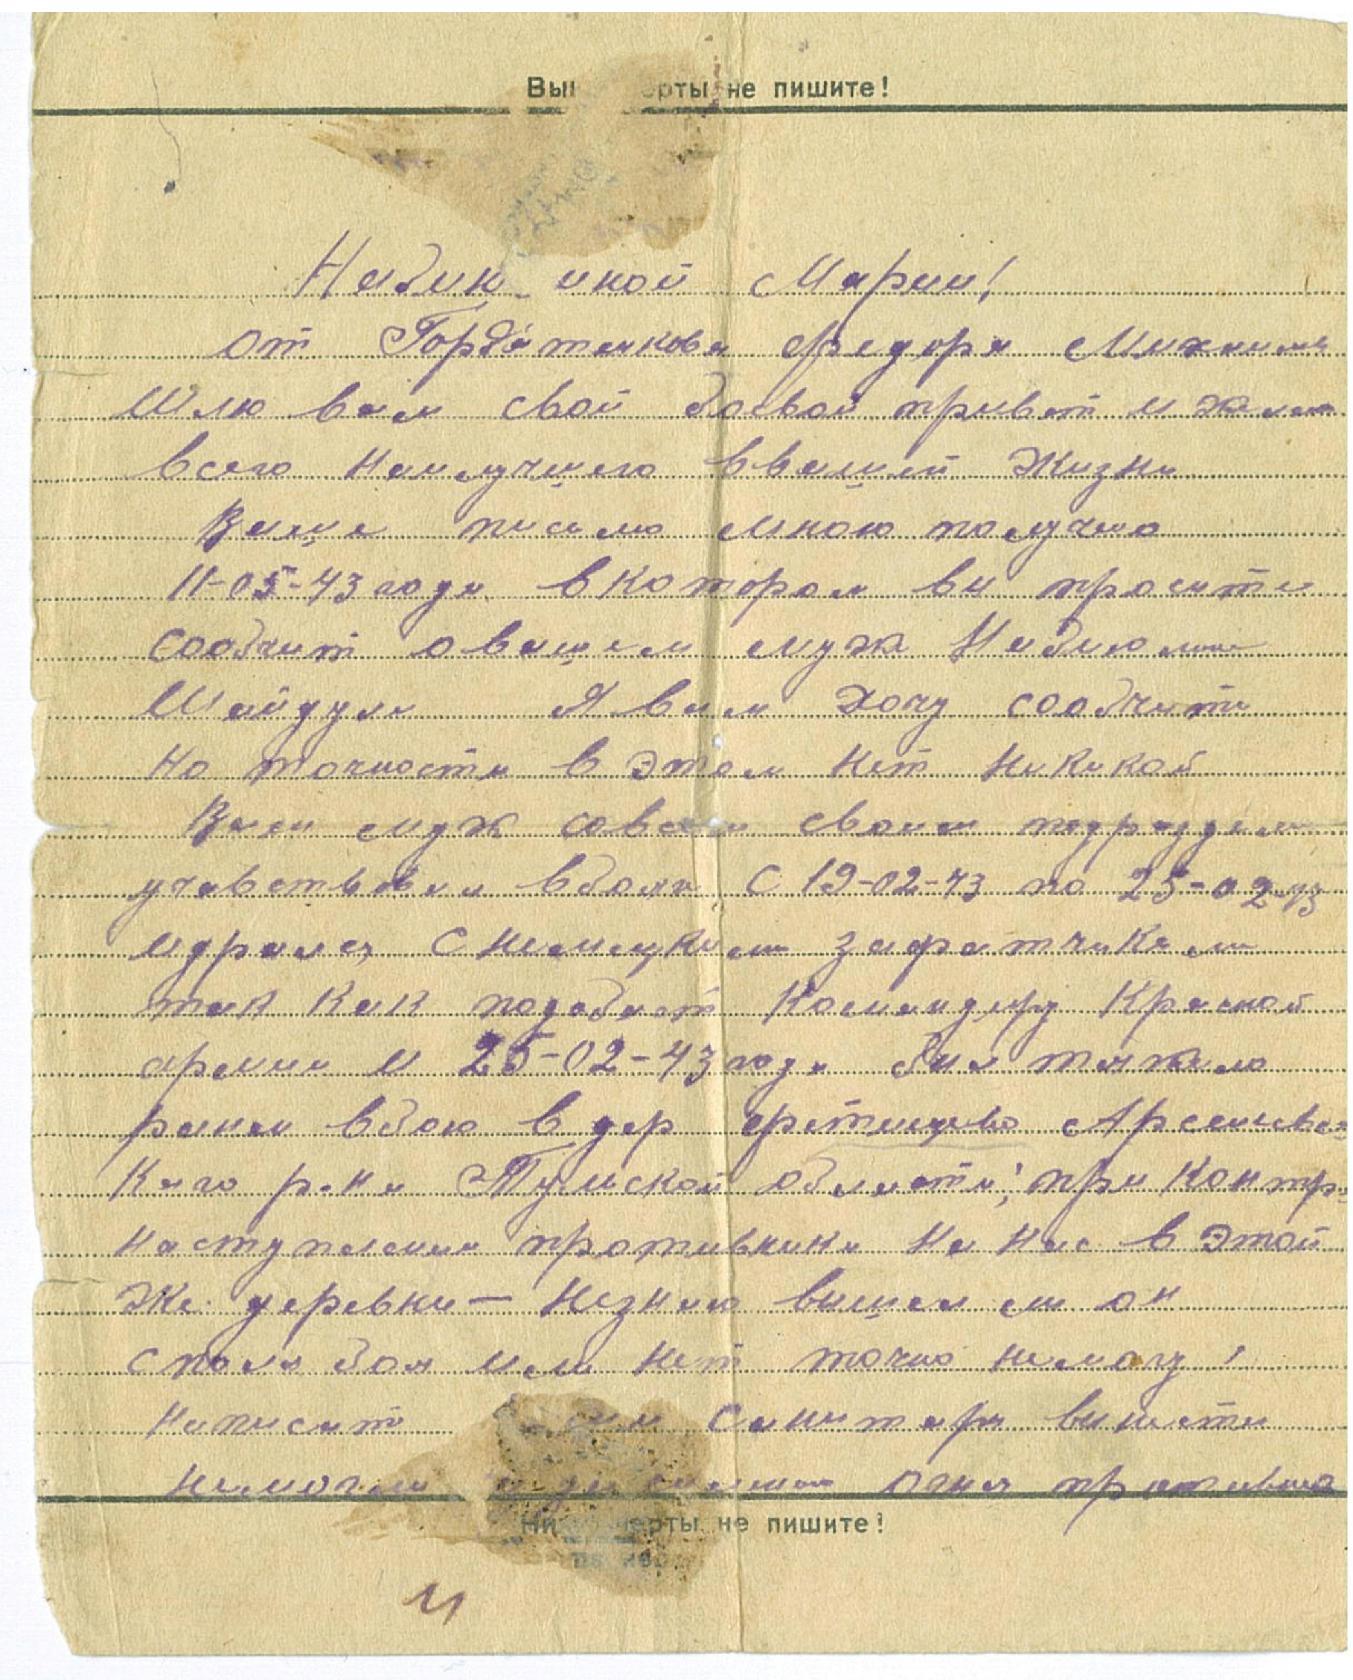 Выше черты не пишите!
Набиулиной Марии!
от Горбатенкова Федора Михаила
Шлю вам свой боевой привет и желаю
всего наилучшего ввашей жизни
Ваше письмо мною получено
11-05-43 года. в котором вы просите
сообчит о вашем муж Набиюлине
Шайдуле Я вам хочу сообчити
но точности в этом нет никакой
Ваш муж совсем своим подраздел
учавствовал вбоях С 19-02-43 по 25-02-43
и дрался С немецкими захватчиками
так как подобает Командиру Красной
армии и 25-02-43 года был тяжело
ранен вбою в дер Арсеньевс
Кого р-на Тульской области; при контр
наступлении противника На нас в этой
же деревни — Незнаю вышел ли он
с поля боя или нет точно немогу
написат санитары вынести
немогли огня противника
Ниже черты не пишите!